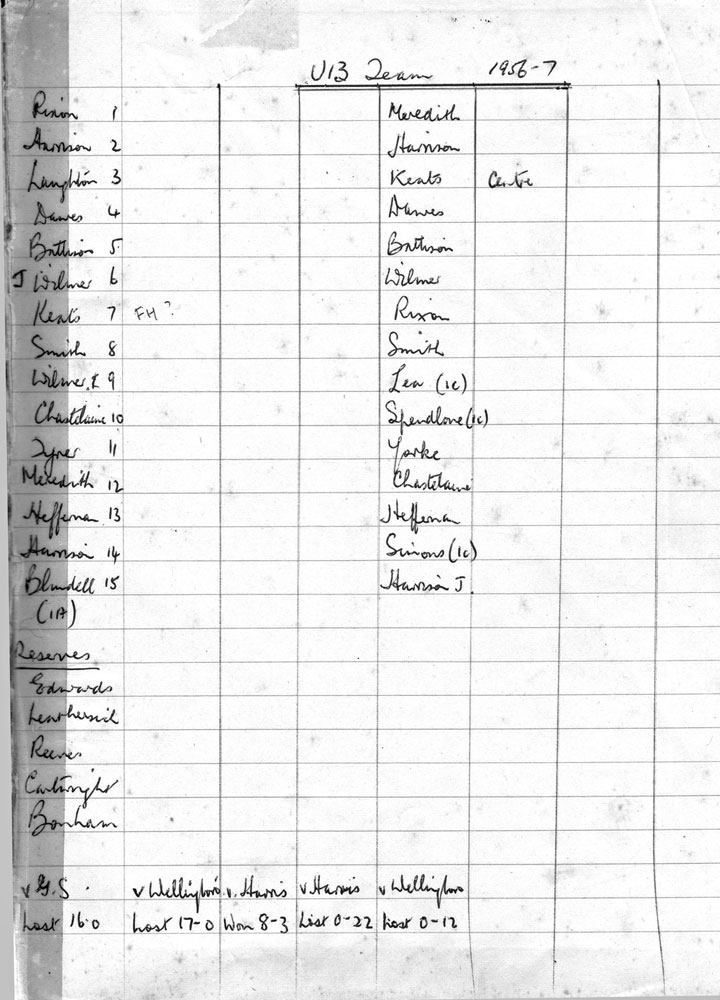 U13 Team 1956-7
Rixon 1 Meredith
Harrison 2 Harrison
Laughton 3 Keats Centre
Dawes 4 Dawes
Battison 5 Battison
J Wilmer 6 Wilmer
Keats 7 FH? Rixon
Smith 8 Smith
Wilmer. 9 Lea (1c)
Chastelaine 10 Spendlove (1c)
11 Yorke
Meredith 12 Chastelaine
Heffernan 13 Heffernan
Harrison 14 Simons (1c)
Blundell 15 Harrison J.
(1A)
Reserves
Edwards
Reeves
Cartwright
Bonham
v G.S. v Wellingboro v. Harris v Harris v Wellingboro
Lost 16-0 Lost 17-0 Won 8-3 Lost 0-22 Lost 0-12